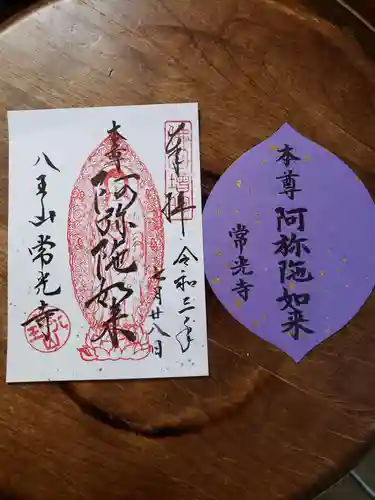 奉拝
令和三年
七月廿八日
本尊
阿弥陀如来
八王山常光寺
本尊
阿弥陀如来
常光寺